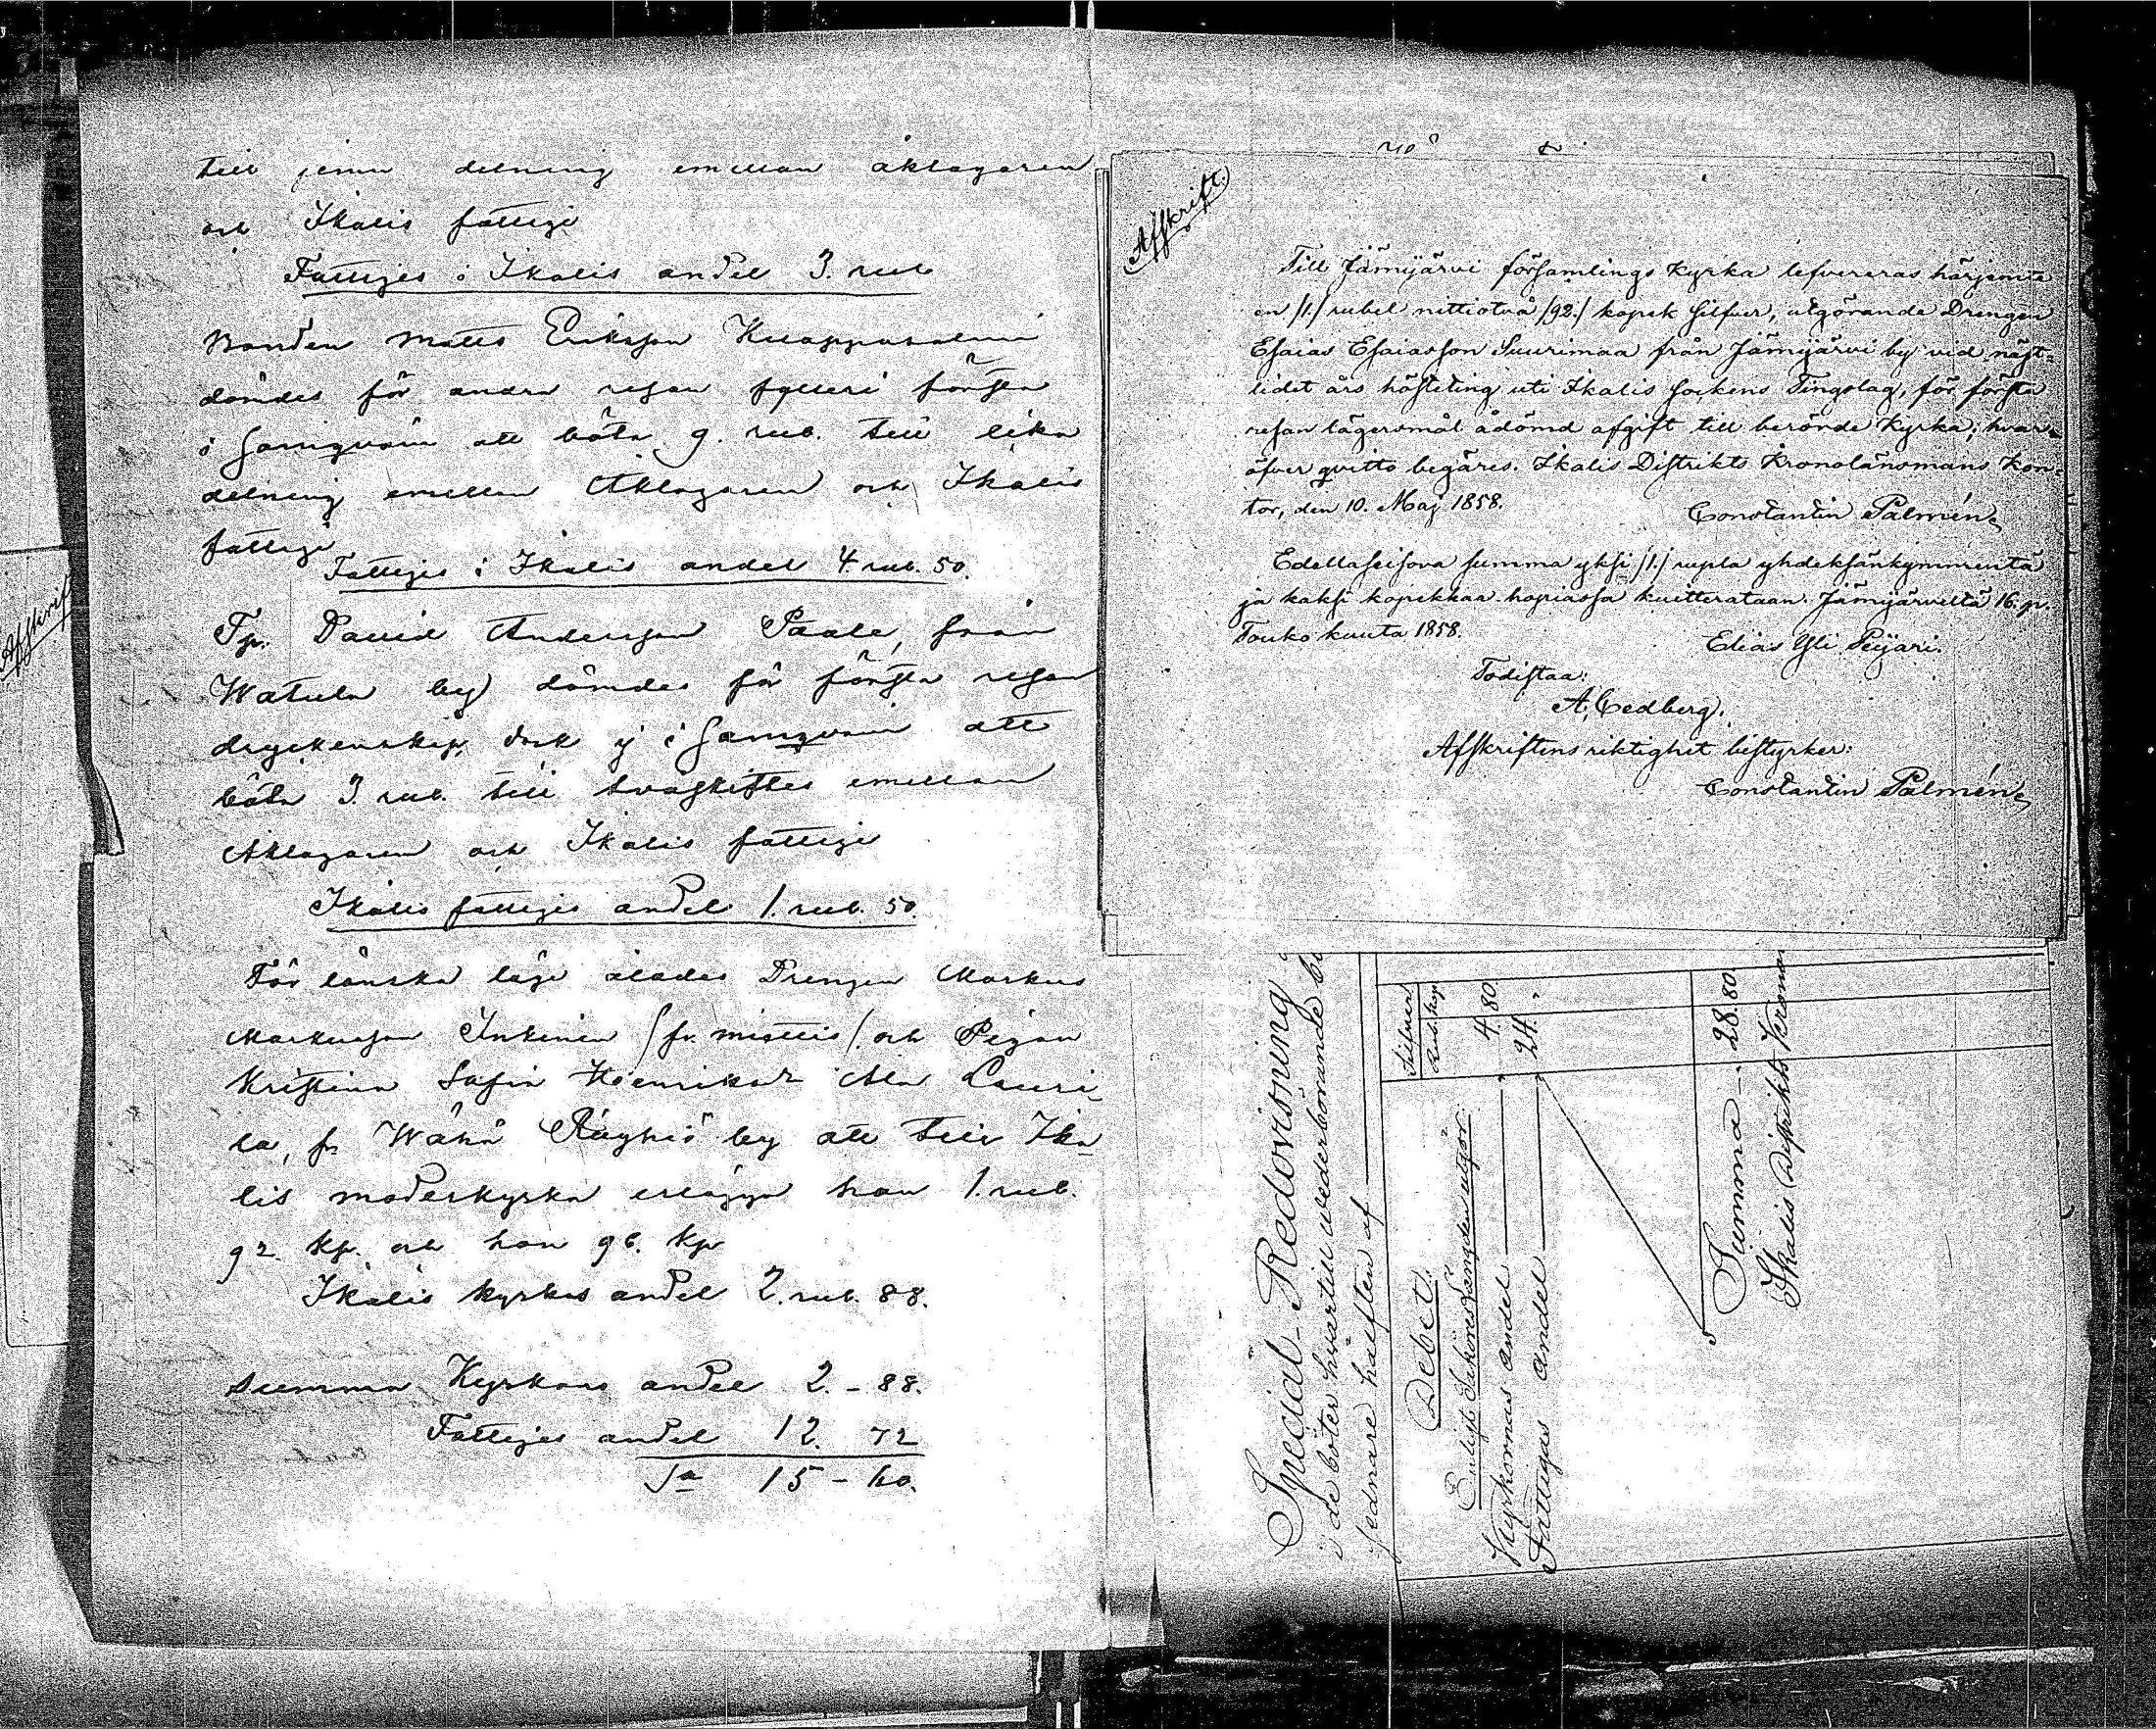 till jemn delning emellan åklagaren
och Ikalis fattige
Fattiges i Ikalis andel 3. rub
Bonden Matts Eriksson
dömdes för andra resan fylleri första
i samqväm att böta 9. rub. till lika
delning emellan Åklagaren och Ikalis
fattige
Fattiges i Ikalis andel 4. rub. 50.
Tp. David Andersson Paale, från
Watula by dömdes för första resan
dryckenskap, dock ej i samqväm att
böta 3. rub. till tvåskiftes emellan
Åklagaren och Ikalis fattige
Ikalis fattiges andel 1. rub. 50.
För lönska läge ålades Drengen Markus
Markusson Inkinen /fr. / och Pigan
Kristina Sofia Henriksdr Ala Lauri
la, fr Wähä Röyhiö by att till Ika
lis moderkyrka erlägga han 1. rub.
92. kp. och hon 96. kp
Ikalis kyrkas andel 2. rub. 88.
Summa Kyrkans andel 2. - 88.
Fattiges andel 12. 72
Sa 15 - 60.
Afskrift.
Afskrift.
Till Jämijärvi församlings Kyrka lefvereras härjemte
en /1./ rubel nittiotvå /92./ kopek silfver, utgörande Drengen
Esaias Esaiasson Suurimaa från Jämijärvi by vid näst=
lidet års hösteting uti Ikalis Sockens Tingslag, för första
resan lägersmål ådömd afgift till berörde Kyrka; hvar=
öfver qvitto begäres. Ikalis Distrikts Kronolänsmans Kon=
tor, den 10. Maj 1858.
Constantin Palmén
Edellaseisova summa yksi /1./ rupla yhdeksänkymmentä
ja kaksi kopekkaa hopiassa kuitterataan. Jämijärveltä 16. p.
Touko kuuta 1858.
Elias Yli Peijari.
Todistaa:
A. Cedberg.
Afskriftens riktighet bestyrker:
Constantin Palmén
Special-Redovisning
de böter hvartill vederbörande
sednare hälften af
Debet.
Silfver
Rub. kop.
Enligt Saköreslängden utgör:
Kyrkornas andel 4. 80.
Fattigas andel 24. "
Summa - 28. 80
Ikalis Distrikts Krono